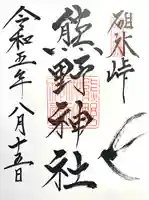 碓氷峠
熊野神社
令和五年八月十五日